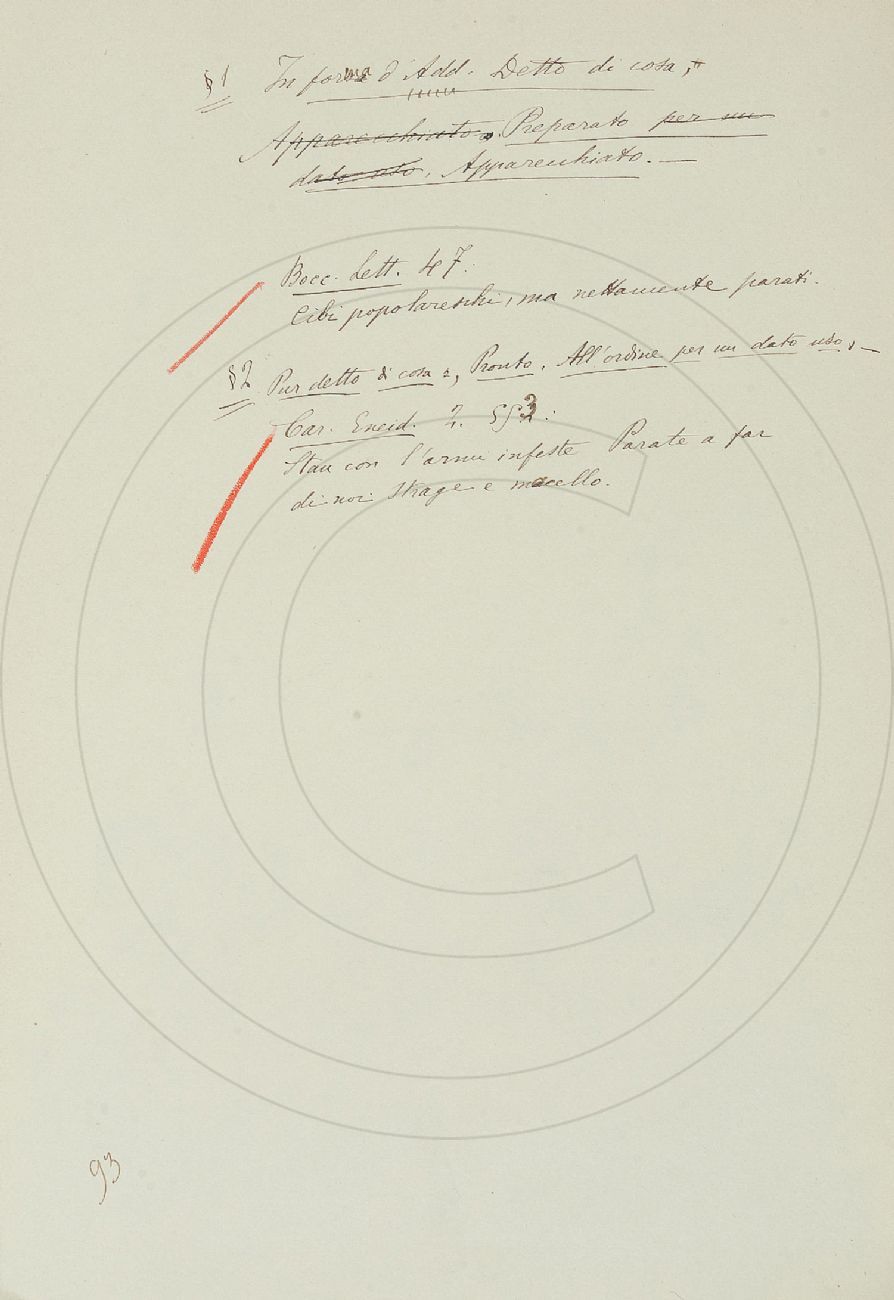 § 1 In forma d'Add. Detto di cosa,
Apparecchiato. Preparato per un
dato uso, Apparecchiato. —
Bocc. Lett. 47.
Cibi popolareschi, ma nettamente parati.
§ 2 Pur detto di cosa, Pronto, All'ordine per un dato uso, —
Car. Eneid. 2. 552:
Stan con l'armi infeste Parate a far
di noi strage e macello.
93